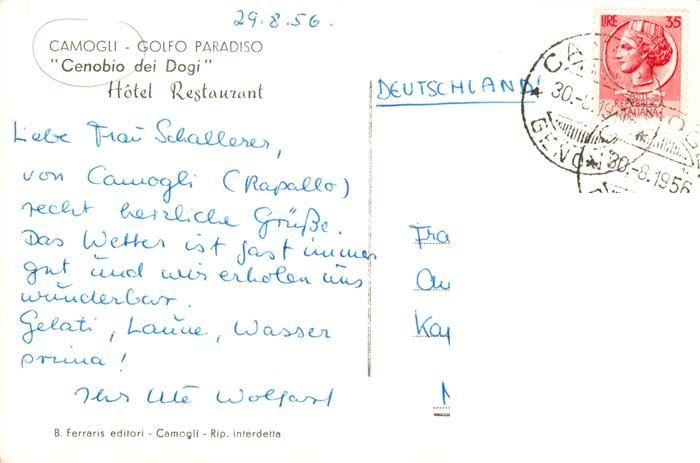 29.8.56.
CAMOGLI - GOLFO PARADISO
"Cenobio dei Dogi"
Hôtel Restaurant
Liebe Frau Schallerer,
von Camogli (Rapallo)
recht herzliche Grüße.
Das Wetter ist fast immer
gut und wir erholen uns
wunderbar.
Gelati, Laune, Wasser
prima!
Ihre Ute Wolfart
B. Ferraris editori - Camogli - Rip. interdetta
LIRE 35
REPUBBLICA
ITALIANA
30.-8.19
GENO
30.-8.1956
DEUTSCHLAND!
Fra
Kap